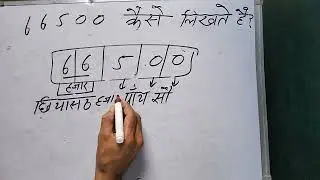 66500 कैसे लिखते है?
66500
हजार
छियासठ हजार पाँच सौ